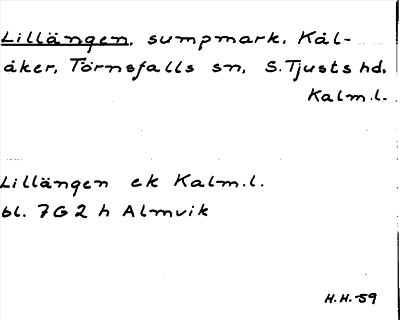 Lillängen, sumpmark, Kål-
åker, Törnsfalls sn, S.Tjusts hd,
Kalm.l.
Lillängen ek Kalm.l.
bl. 7G2 h Almvik
H.H.-59